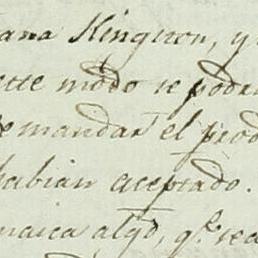 ana Kingston, y
este modo se podr
e mandar el prod
habian aceptado.
maica algo, q.e sea